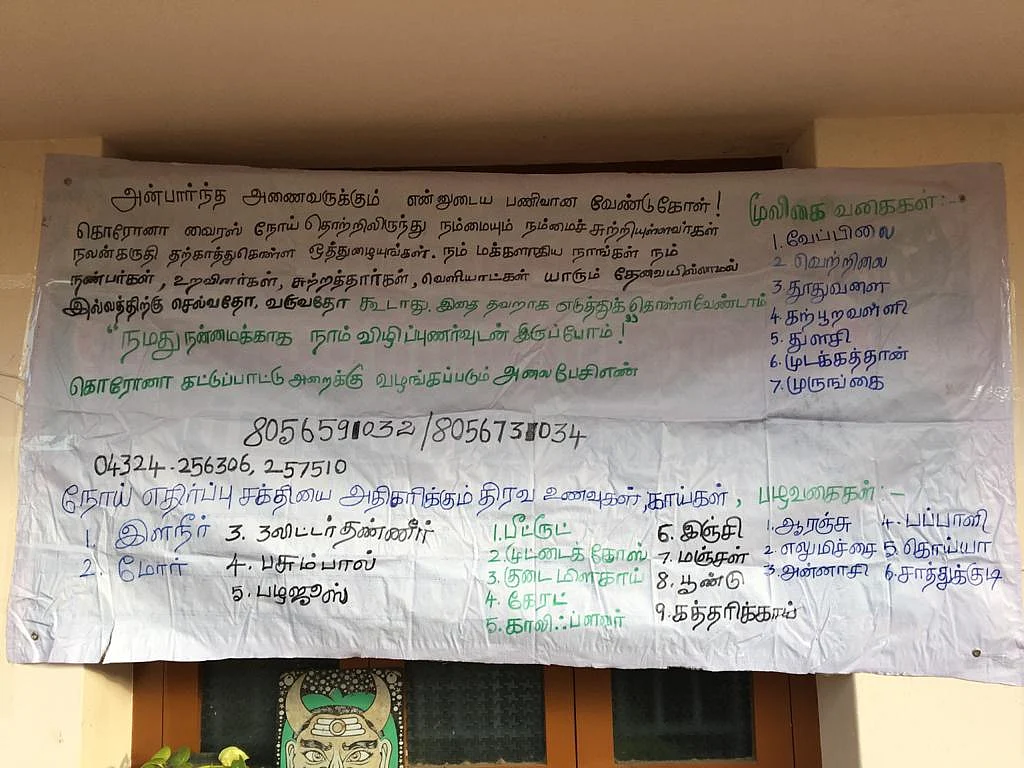 அன்பார்ந்த அணைவருக்கும் என்னுடைய பணிவான வேண்டுகோள்!
கொரோனா வைரஸ் நோய் தொற்றிலிருந்து நம்மையும் நம்மைச் சுற்றியுள்ளவர்கள்
நலன்கருதி தற்காத்துகொள்ள ஒத்துழையுங்கள். நம் மக்களாகிய நாங்கள் நம்
நண்பர்கள், உறவினர்கள், சுற்றத்தார்கள், வெளியாட்கள் யாரும் தேவையில்லாமல்
இல்லத்திற்கு செல்வதோ, வருவதோ கூடாது. இதை தவறாக எடுத்துக் கொள்ளவேண்டாம்
"நமது நன்மைக்காக நாம் விழிப்புணர்வுடன் இருப்போம்!"
கொரோனா கட்டுப்பாட்டு அறைக்கு வழங்கப்படும் அலைபேசிஎண்
8056591032/8056731034
04324-256306, 257510
மூலிகை வகைகள்:-
1. வேப்பிலை
2 வெற்றிலை
3. தூதுவளை
4. கற்பூரவள்ளி
5. துளசி
6. முடக்கத்தான்
7. முருங்கை
நோய் எதிர்ப்பு சக்தியை அதிகரிக்கும் திரவ உணவுகள், காய்கள், பழவகைகள்:-
1. இளநீர்
2. மோர்
3. 3லிட்டர் தண்ணீர்
4. பசும்பால்
5. பழஜூஸ்
1. பீட்ரூட்
2. முட்டைக்கோஸ்
3. குடைமிளகாய்
4. கேரட்
5. காலிஃப்ளவர்
6. இஞ்சி
7. மஞ்சள்
8. பூண்டு
9. கத்தரிக்காய்
1. ஆரஞ்சு
2 எலுமிச்சை
3. அன்னாசி
4. பப்பாளி
5. கொய்யா
6. சாத்துக்குடி